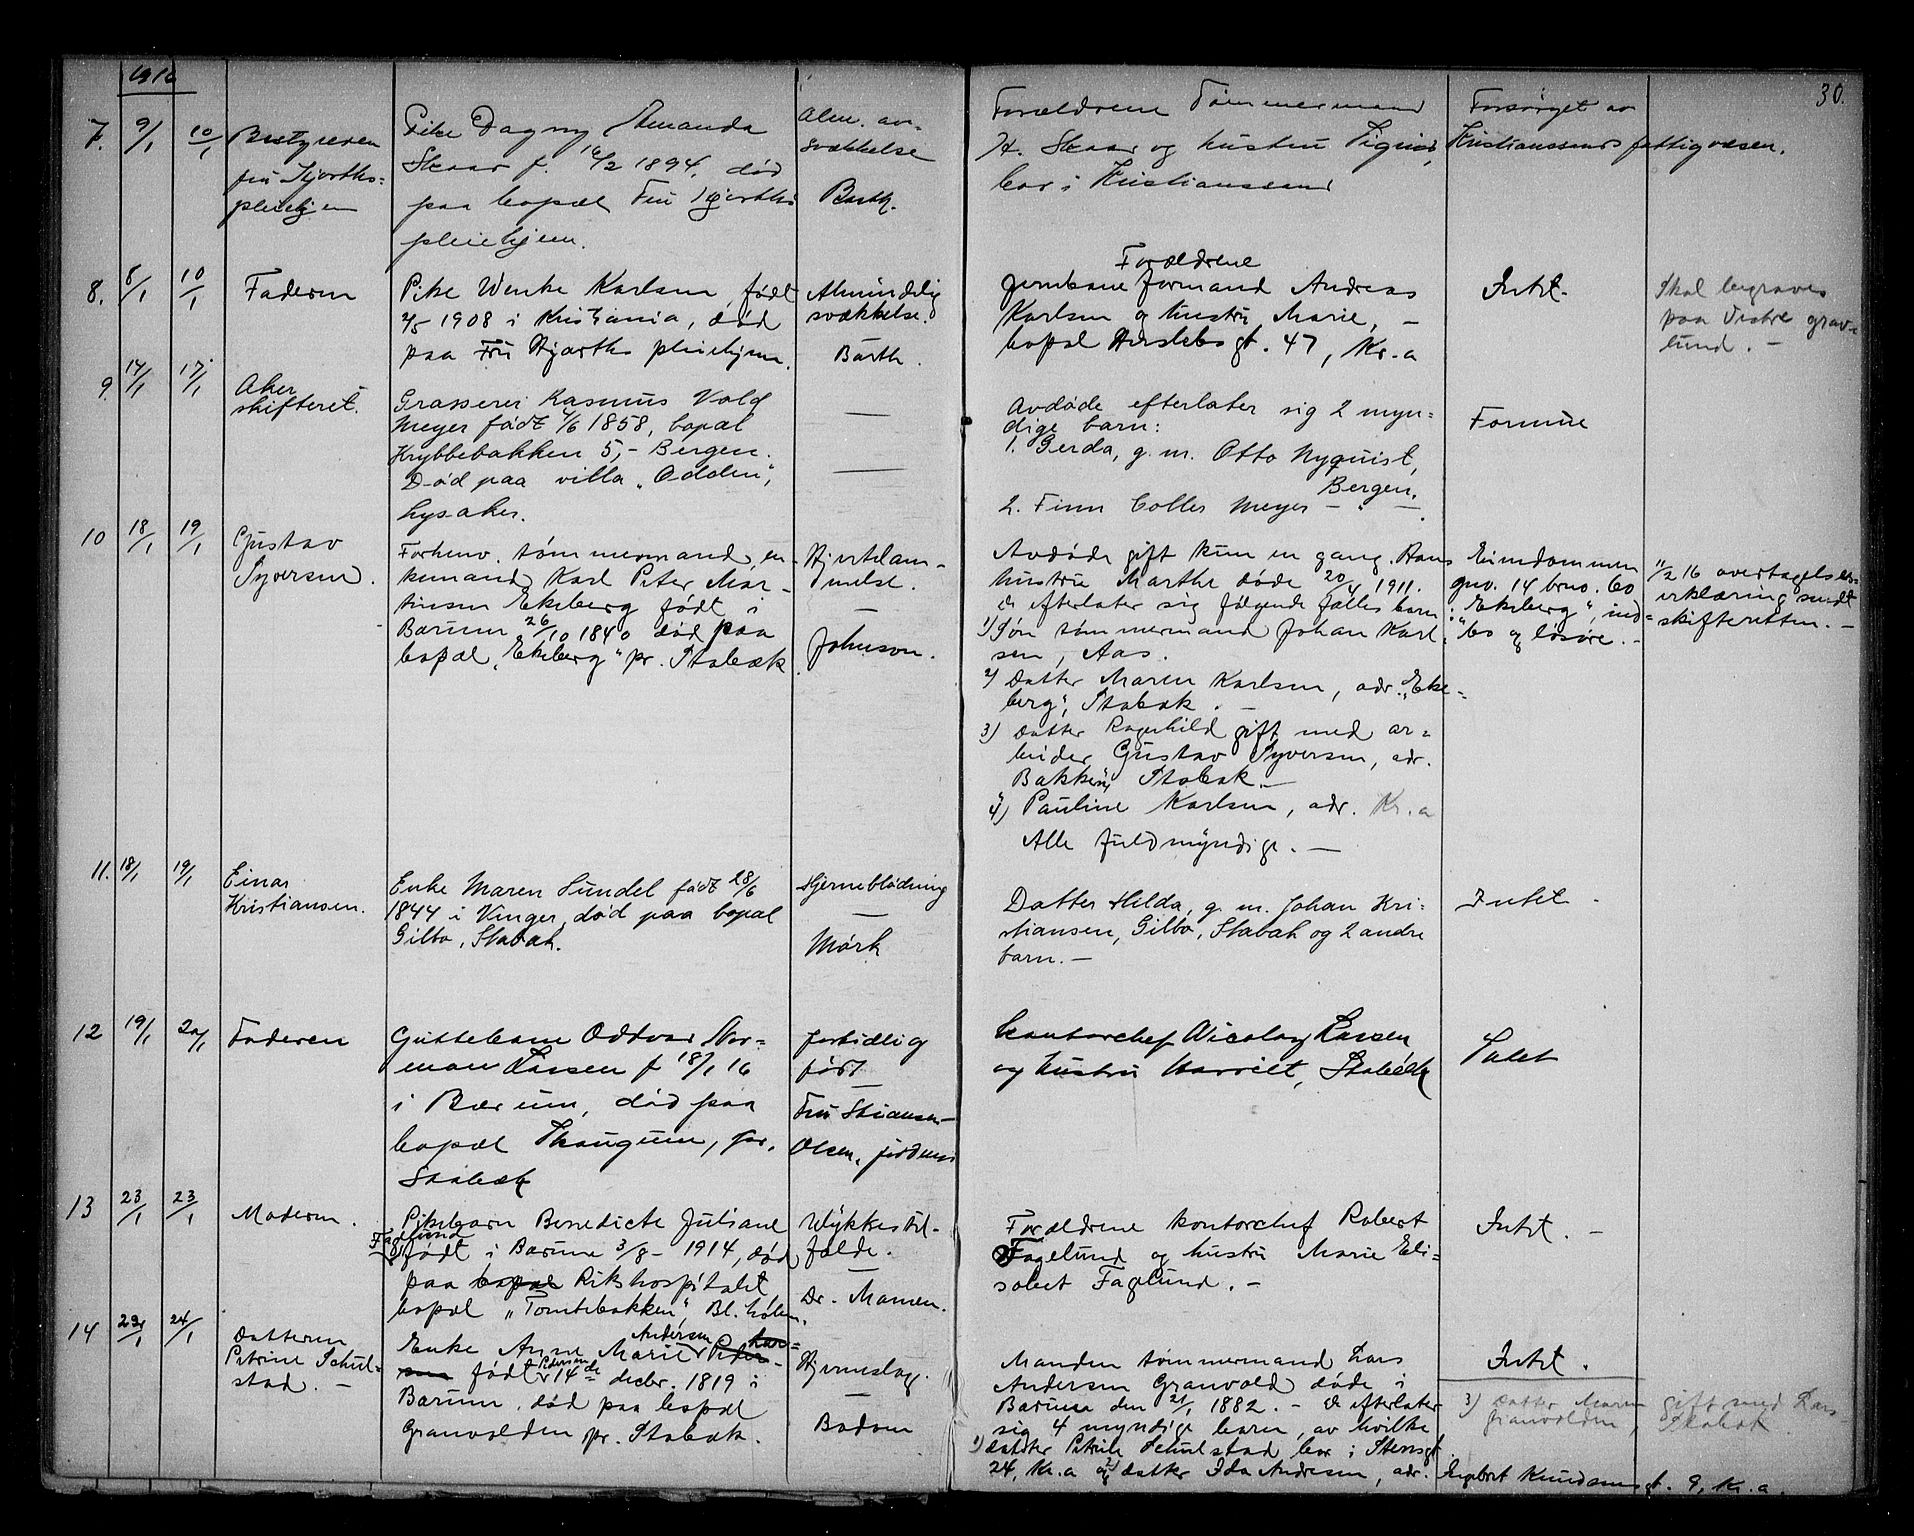 1916
30.
7. 9/1 10/1
Bestyreren
fru Hjorths
pleiehjem
Pike Dagny Amanda
Skaar f. 16/2 1894, død
paa bopæl Fru Hjorths
pleiehjem.
Alm. av-
svækkelse
Barth.
Forældrene Tømmermand
H. Skaar og hustru
bor i Kristianssund
Forsørget av
Kristianssunds fattigvæsen.
8. 8/1 10/1
Faderen
Pike Wenke Karlsen, født
2/5 1908 i Kristiania, død
paa Fru Hjorths pleiehjem.
Almindelig
svækkelse.
Barth.
Forældrene
Jernbaneformand Andreas
Karlsen og hustru Marie, -
bopæl Herslebsgt. 47, Kr.a
Intet.
Skal begraves
paa Vestre grav-
lund. -
9. 14/1 17/1
Aker
skifteret.
Grosserer Rasmus Vold
Meyer født 4/6 1858, bopæl
Krybbebakken 5, - Bergen.
Død paa villa "Odden",
Lysaker.
Avdøde efterlater sig 2 myn-
dige barn:
1. Gerda, g. m. Otto Nyquist,
Bergen.
2. Finn Colles Meyer - " -
Formue
10 18/1 19/1
Gustav
Syversen.
Forhenv. tømmermand, en-
kemand Karl Peter Mar-
tinsen Ekeberg født i
Bærum 26/10 1840 død paa
bopæl "Ekeberg" pr. Stabæk
Hjertelam-
melse.
-
Johnson.
Avdøde gift kun en gang. Hans
hustru Marthe døde 20/4 1911.
De efterlater sig følgende fælles barn
1) Søn tømmermand Johan Karl-
sen, Aas.
2) Datter Maren Karlsen, adr. "Eke-
berg", Stabæk. -
3) Datter Ragnhild gift med ar-
beider Gustav Syversen, adr.
Bakken, Stabæk. -
4) Pauline Karlsen, adr. Kr.a
Alle fuldmyndige. -
Eiendommen
gnr. 14 brno. 60
"Ekeberg", ind-
bo og løsøre. -
11/2 16 overtagelses-
erklæring sendt
skifteretten. -
11. 18/1 19/1
Einar
Kristiansen.
Enke Maren Sundel født 28/6
1844 i Vinger, død paa bopæl
Gilbo, Stabæk.
Hjerneblødning
-
Mørk
Datter Hilda, g. m. Johan Kri-
stiansen, Gilbo, Stabæk og 2 andre
barn. -
Intet -
12 19/1 20/1
Faderen
Guttebarn Oddvar Nor-
man Lassen f 18/1 16
i Bærum, død paa
bopæl Skaugum, pr.
Stabæk
fortidlig
født
-
Fru Stiansen-
Olsen, jordmor
Kontorchef Nicolay Lassen
og hustru Harriet, Stabæk
Intet
13 23/1 23/1
Moderen.
Pikebarn Benedicte Juliane
Fagelund
født i Bærum 3/8 - 1914, død
paa bopæl Rikshospitalet
bopæl "Tomtebakken" Bl.holm.
Ulykkestil-
fælde.
-
Dr. Mamen.
Forældrene kontorchef Robert
Fagelund og hustru Marie Eli-
sabet Fagelund. -
Intet. -
14 23/1 24/1
Datteren
Petrine Schul-
stad. -
Andersen
Enke Anne Marie
Pedersen
født 14de decbr. 1819 i
Bærum, død paa bopæl
Granvolden pr. Stabæk.
Hjerneslag.
-
Bodom
Manden tømmermand Lars
Andersen Granvold døde i
Bærum den 21/1 1882. - De efterlater
sig 4 myndige barn, av hvilke
1) datter Petrine Schulstad bor i Stensgt
24, Kr.a og 2) datter Ida Andresen, adr. Ingebret Knudsensgt. 9, Kr.a.
Intet.
3) datter Maren gift med Lars
Granvolden, Stabæk